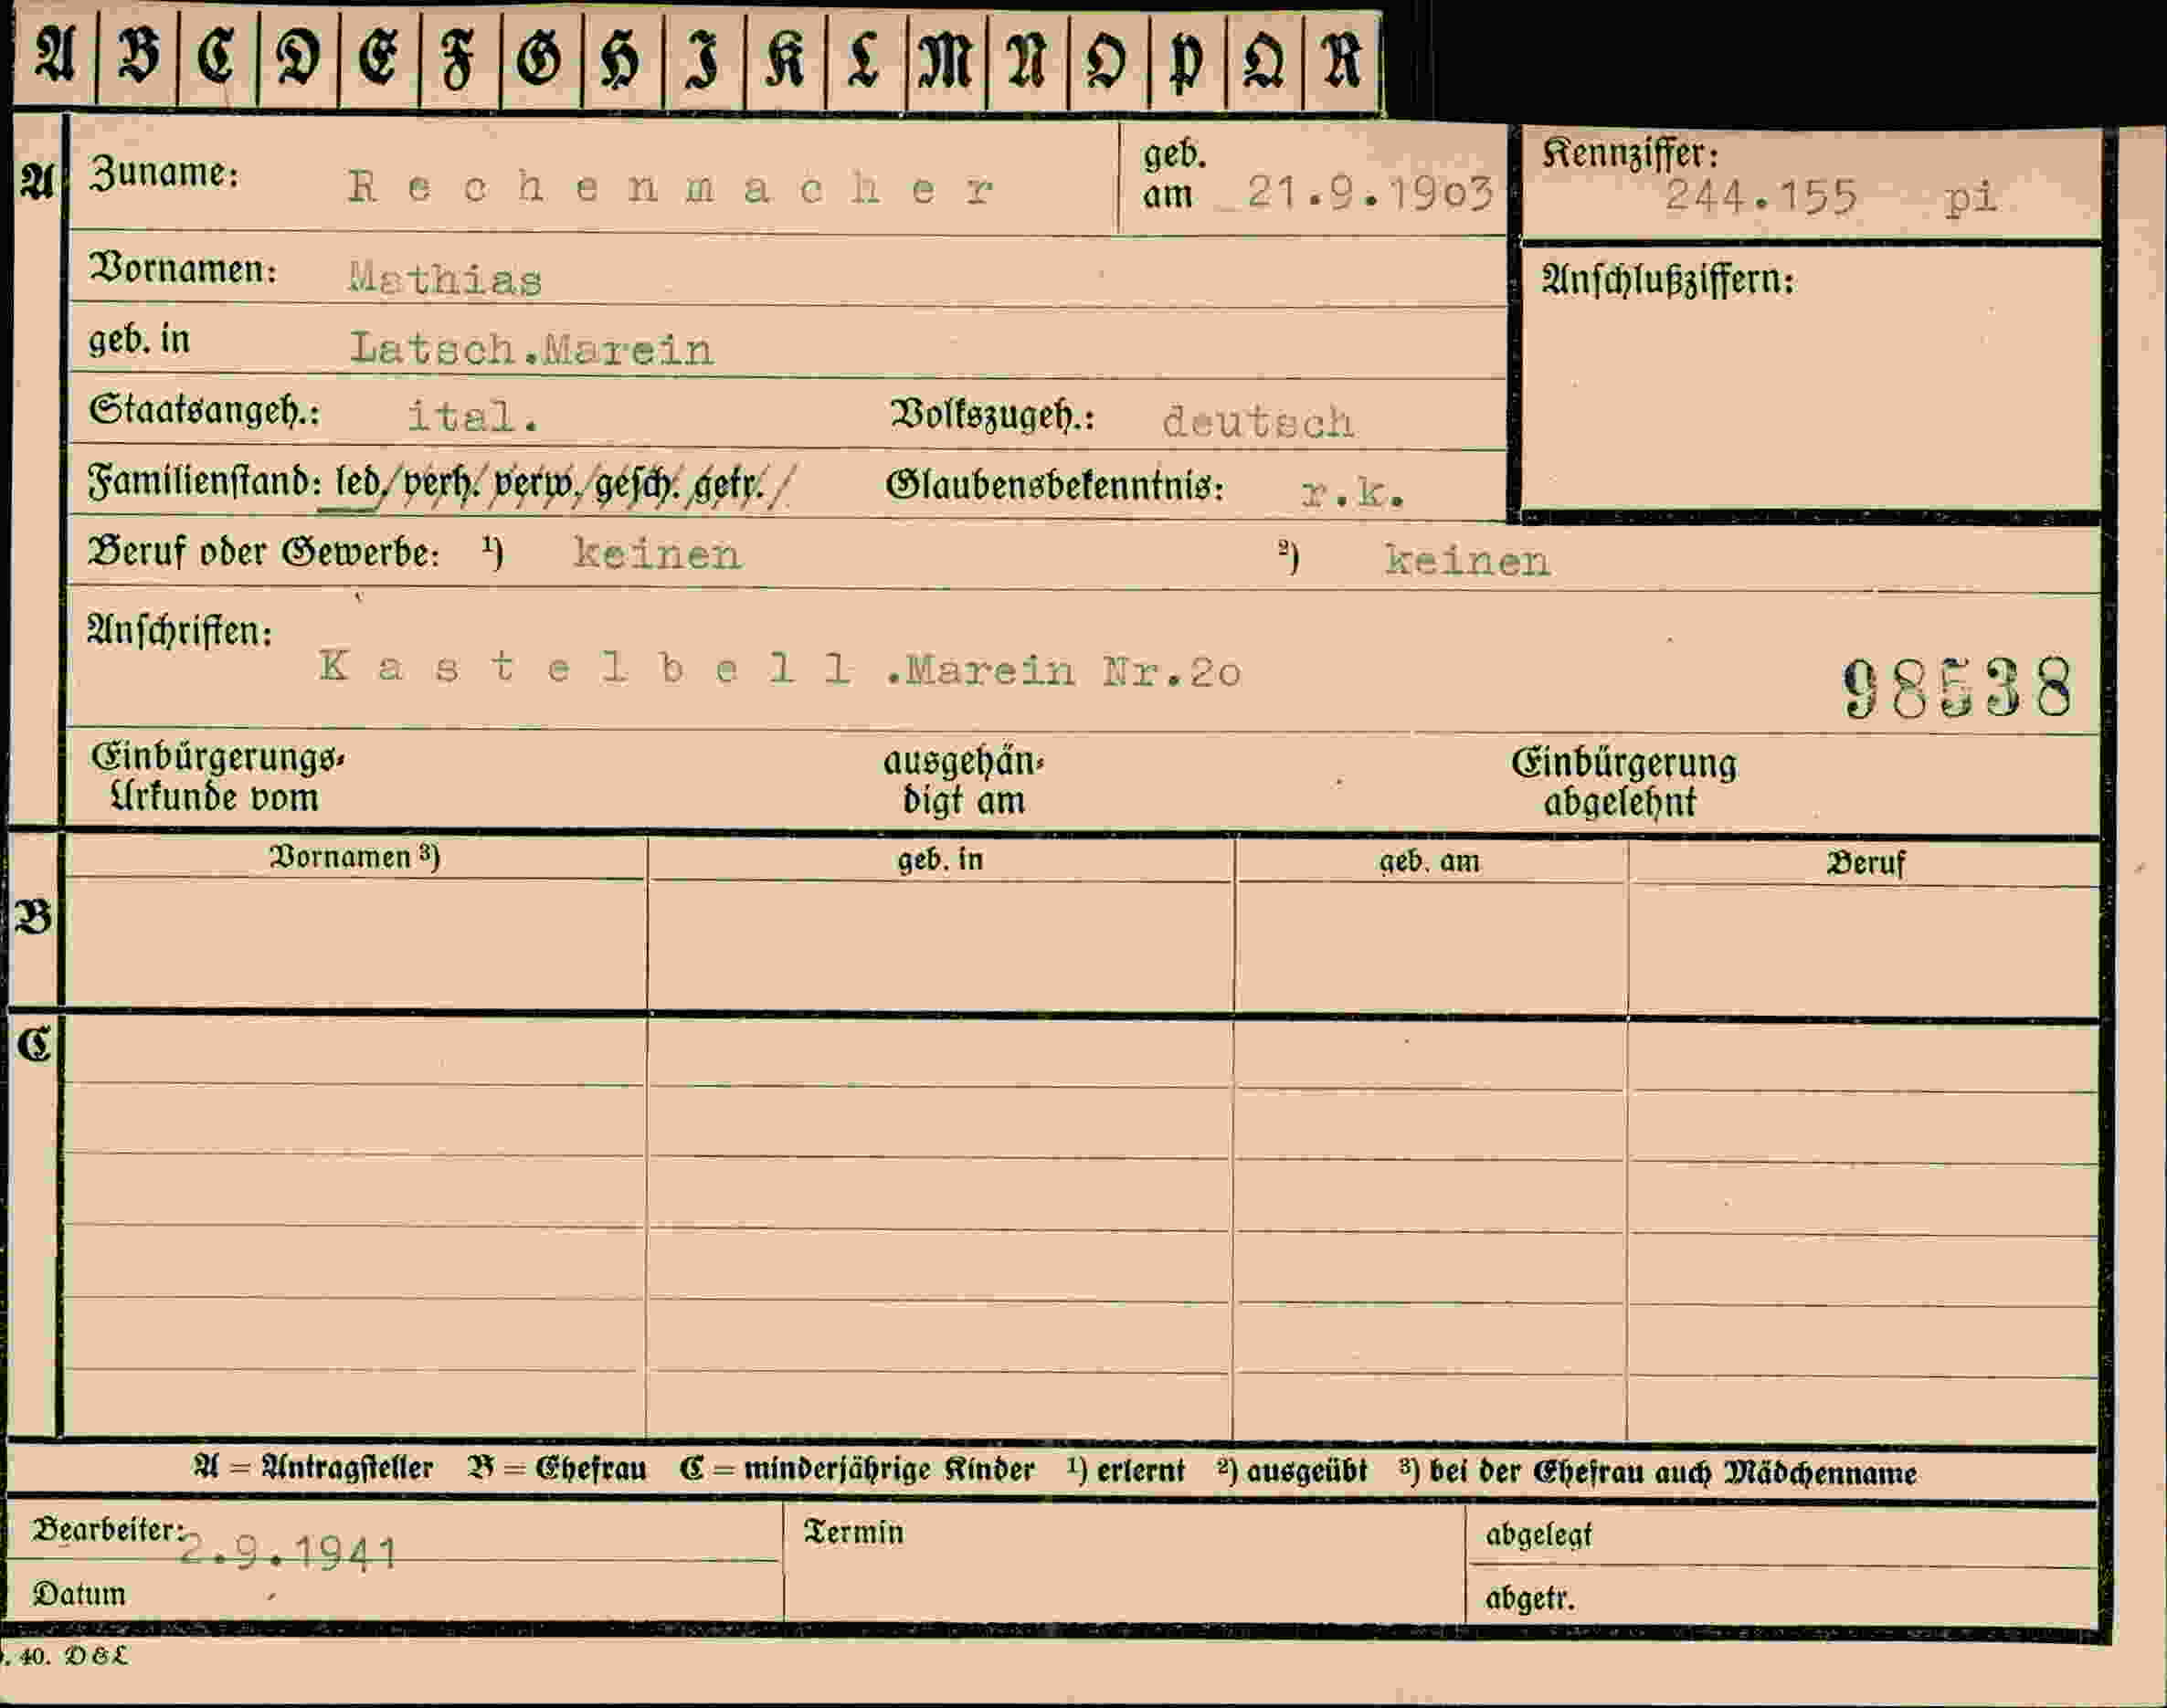 A B C D E F G H I K L M N O P Q R
A Zuname: Rechenmacher geb. am 21.9.1903 Kennziffer: 244.155 pi
Vornamen: Mathias Anschlußziffern:
geb. in Latsch.Marein
Staatsangeh.: ital. Volkszugeh.: deutsch
Familienstand: led. verh. verw. gesch. getr. Glaubensbekenntnis: r.k.
Beruf oder Gewerbe: ¹) keinen ²) keinen
Anschriften:
Kastelbell.Marein Nr.20 98538
Einbürgerungs- ausgehän- Einbürgerung
Urkunde vom digt am abgelehnt
Vornamen ³) geb. in geb. am Beruf
B
C
A = Antragsteller B = Ehefrau C = minderjährige Kinder ¹) erlernt ²) ausgeübt ³) bei der Ehefrau auch Mädchenname
Bearbeiter: 2.9.1941 Termin abgelegt
Datum abgetr.
. 40. D & L